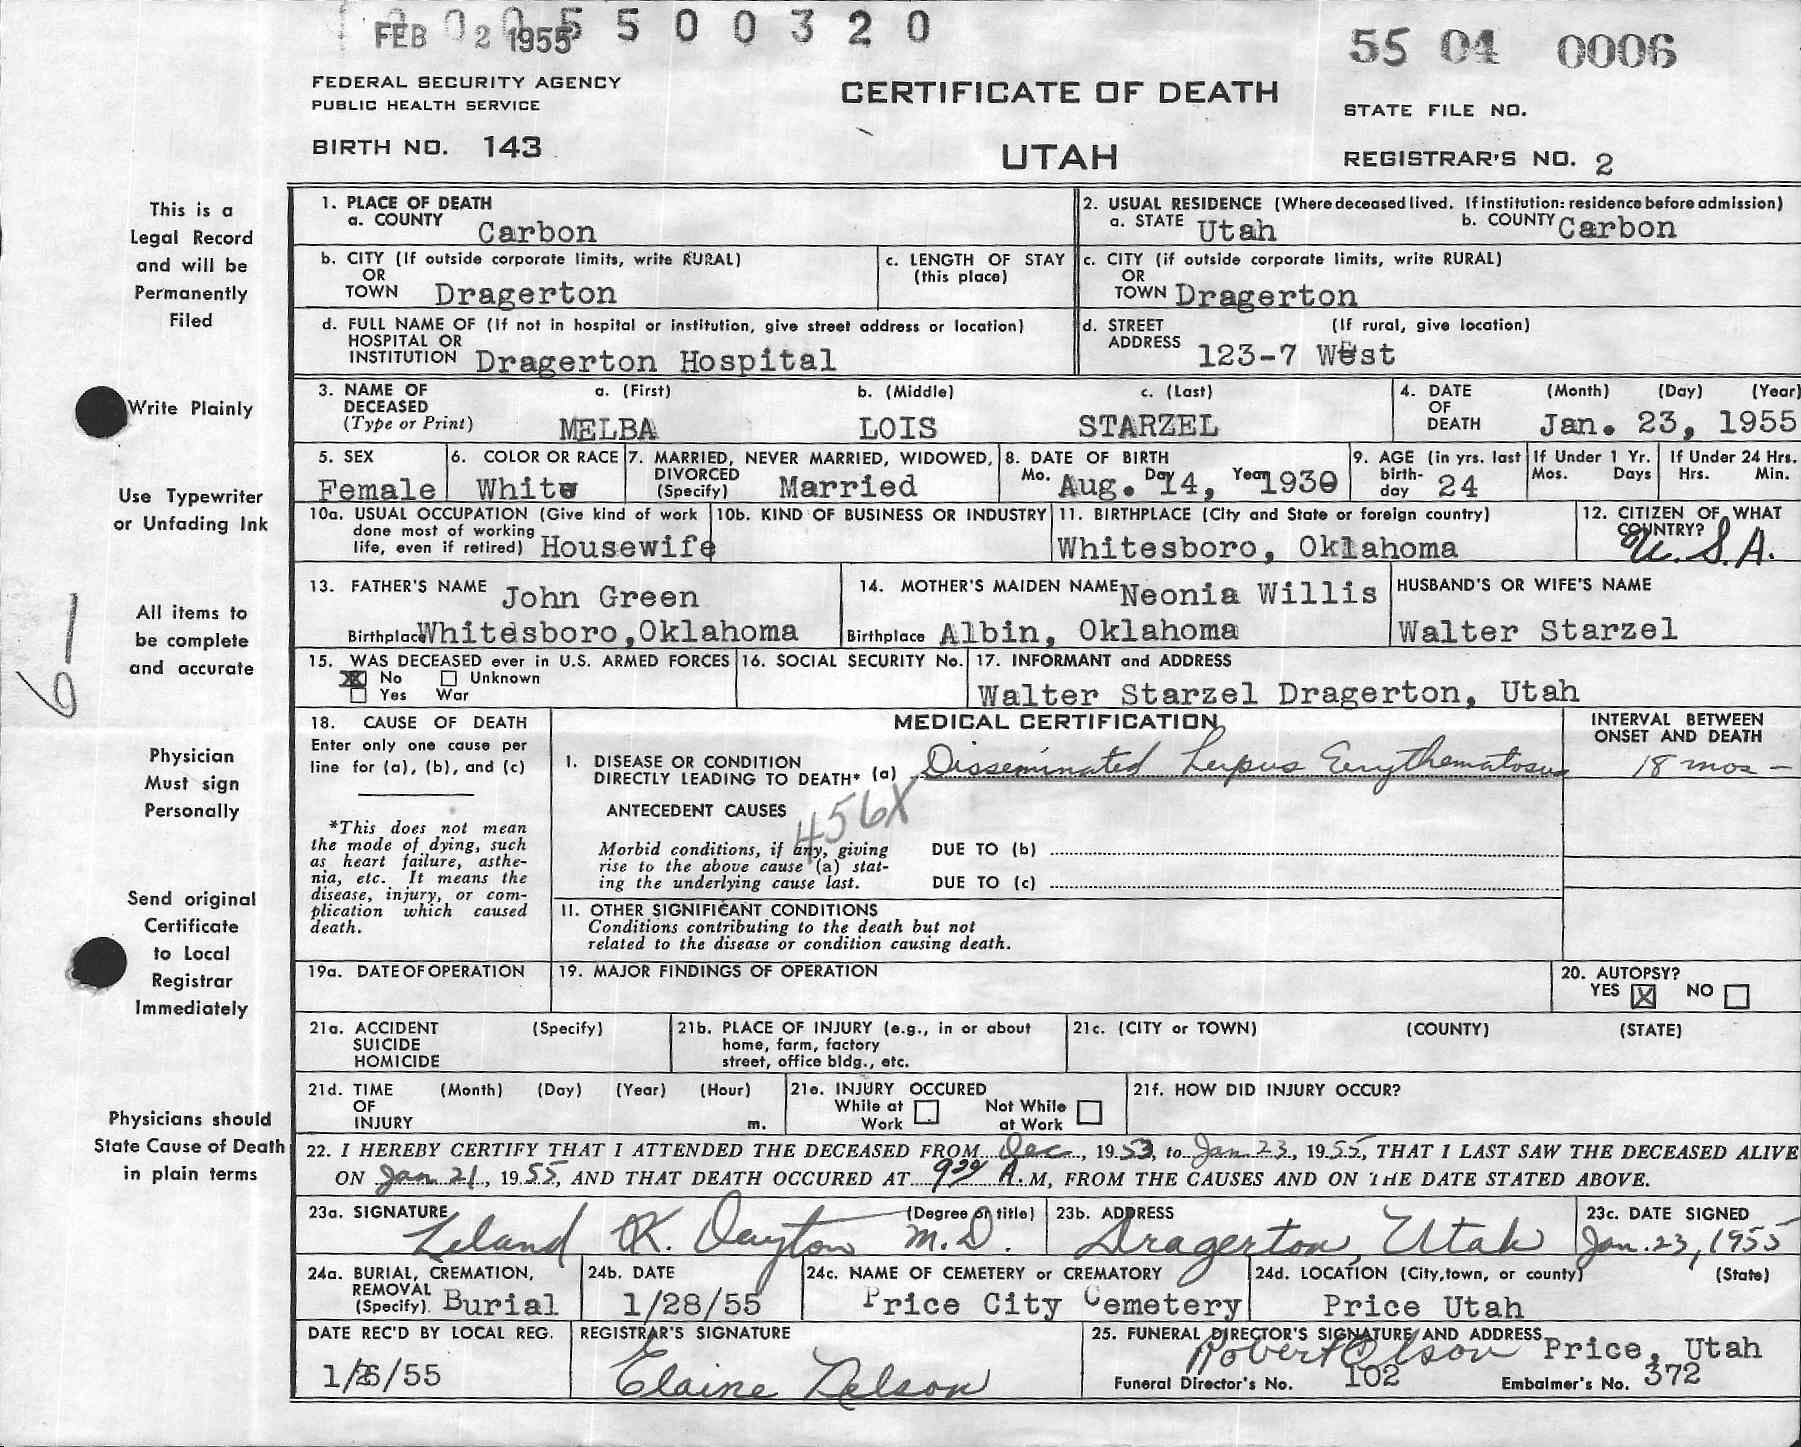 FEB 02 1955 5 5 0 0 3 2 0
55 04 0006
FEDERAL SECURITY AGENCY
PUBLIC HEALTH SERVICE
CERTIFICATE OF DEATH
STATE FILE NO.
BIRTH NO. 143
UTAH
REGISTRAR'S NO. 2
This is a
Legal Record
and will be
Permanently
Filed
Write Plainly
Use Typewriter
or Unfading Ink
All items to
be complete
and accurate
6—
Physician
Must sign
Personally
Send original
Certificate
to Local
Registrar
Immediately
Physicians should
State Cause of Death
in plain terms
1. PLACE OF DEATH
a. COUNTY Carbon
2. USUAL RESIDENCE (Where deceased lived. If institution: residence before admission)
a. STATE Utah b. COUNTY Carbon
b. CITY (If outside corporate limits, write RURAL)
OR
TOWN Dragerton
c. LENGTH OF STAY
(this place)
c. CITY (if outside corporate limits, write RURAL)
OR
TOWN Dragerton
d. FULL NAME OF (If not in hospital or institution, give street address or location)
HOSPITAL OR
INSTITUTION Dragerton Hospital
d. STREET (If rural, give location)
ADDRESS 123-7 West
3. NAME OF a. (First) b. (Middle) c. (Last)
DECEASED
(Type or Print) MELBA LOIS STARZEL
4. DATE (Month) (Day) (Year)
OF
DEATH Jan. 23, 1955
5. SEX
Female
6. COLOR OR RACE
White
7. MARRIED, NEVER MARRIED, WIDOWED,
DIVORCED
(Specify) Married
8. DATE OF BIRTH
Mo. Aug. Day 14, Year 1930
9. AGE (in yrs. last
birth-
day 24
If Under 1 Yr.
Mos. Days
If Under 24 Hrs.
Hrs. Min.
10a. USUAL OCCUPATION (Give kind of work
done most of working
life, even if retired) Housewife
10b. KIND OF BUSINESS OR INDUSTRY
11. BIRTHPLACE (City and State or foreign country)
Whitesboro, Oklahoma
12. CITIZEN OF WHAT
COUNTRY?
U. S. A.
13. FATHER'S NAME John Green
Birthplace Whitesboro, Oklahoma
14. MOTHER'S MAIDEN NAME Neonia Willis
Birthplace Albin, Oklahoma
HUSBAND'S OR WIFE'S NAME
Walter Starzel
15. WAS DECEASED ever in U.S. ARMED FORCES
No Unknown
Yes War
16. SOCIAL SECURITY No.
17. INFORMANT and ADDRESS
Walter Starzel Dragerton, Utah
18. CAUSE OF DEATH
Enter only one cause per
line for (a), (b), and (c)
*This does not mean
the mode of dying, such
as heart failure, asthe-
nia, etc. It means the
disease, injury, or com-
plication which caused
death.
MEDICAL CERTIFICATION
INTERVAL BETWEEN
ONSET AND DEATH
I. DISEASE OR CONDITION
DIRECTLY LEADING TO DEATH* (a) Disseminated Lupus Erythematosus 18 mos —
ANTECEDENT CAUSES
456X
Morbid conditions, if any, giving
rise to the above cause (a) stat-
ing the underlying cause last.
DUE TO (b)
DUE TO (c)
II. OTHER SIGNIFICANT CONDITIONS
Conditions contributing to the death but not
related to the disease or condition causing death.
19a. DATE OF OPERATION
19. MAJOR FINDINGS OF OPERATION
20. AUTOPSY?
YES X NO
21a. ACCIDENT (Specify)
SUICIDE
HOMICIDE
21b. PLACE OF INJURY (e.g., in or about
home, farm, factory
street, office bldg., etc.
21c. (CITY or TOWN) (COUNTY) (STATE)
21d. TIME (Month) (Day) (Year) (Hour)
OF
INJURY m.
21e. INJURY OCCURED
While at Not While
Work at Work
21f. HOW DID INJURY OCCUR?
22. I HEREBY CERTIFY THAT I ATTENDED THE DECEASED FROM Dec., 1953, to Jan 23, 1955, THAT I LAST SAW THE DECEASED ALIVE
ON Jan 21, 1955, AND THAT DEATH OCCURED AT A.M, FROM THE CAUSES AND ON THE DATE STATED ABOVE.
23a. SIGNATURE (Degree or title)
Leland K. Dayton M.D.
23b. ADDRESS
Dragerton, Utah
23c. DATE SIGNED
Jan. 23, 1955
24a. BURIAL, CREMATION,
REMOVAL
(Specify). Burial
24b. DATE
1/28/55
24c. NAME OF CEMETERY or CREMATORY
Price City Cemetery
24d. LOCATION (City, town, or county) (State)
Price Utah
DATE REC'D BY LOCAL REG.
1/26/55
REGISTRAR'S SIGNATURE
Elaine Nelson
25. FUNERAL DIRECTOR'S SIGNATURE AND ADDRESS
Robert Olson Price, Utah
Funeral Director's No. 102 Embalmer's No. 372